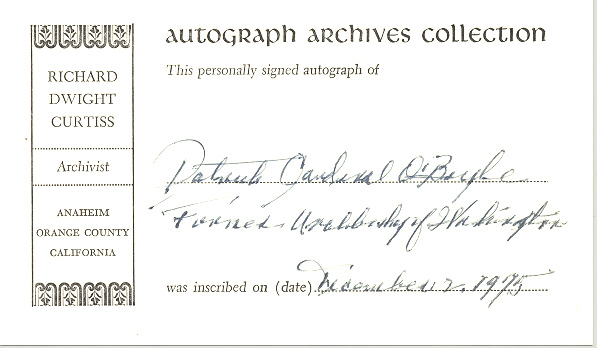 AUTOGRAPH ARCHIVES COLLECTION
This personally signed autograph of
RICHARD
DWIGHT
CURTISS
Archivist
ANAHEIM
ORANGE COUNTY
CALIFORNIA
Patrick Cardinal O'Boyle
Former Archbishop of Washington
was inscribed on (date) December 2, 1975